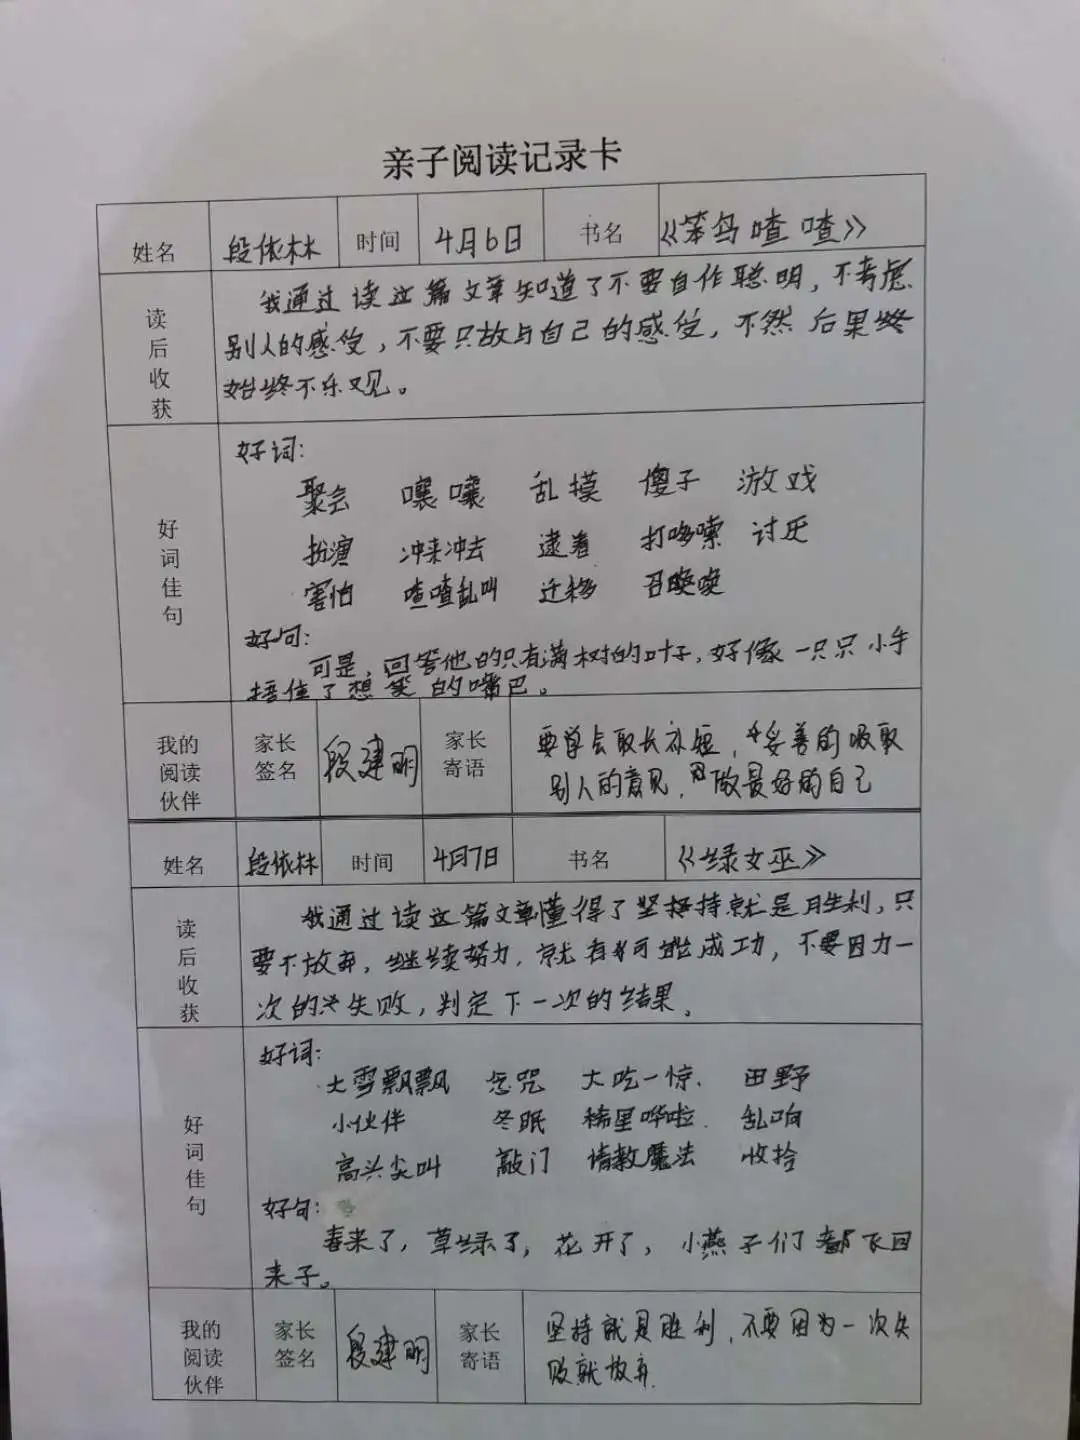 亲子阅读记录卡
姓名 段依林 时间 4月6日 书名 《笨鸟喳喳》
读后收获
我通过读这篇文章知道了不要自作聪明，不考虑
别人的感受，不要只故与自己的感受，不然后果终
始终不乐观。
好词佳句
好词：
聚会 嚷嚷 乱摸 傻子 游戏
扮演 冲来冲去 逮着 打哆嗦 讨厌
害怕 喳喳乱叫 迁移 召唤唤
好句：
可是，回答他的只有满树的叶子，好像一只只小手
捂住了想笑的嘴巴。
我的阅读伙伴 家长签名 段建明 家长寄语
要学会取长补短，妥善的吸取
别人的意见，做最好的自己
姓名 段依林 时间 4月7日 书名 《绿女巫》
读后收获
我通过读这篇文章懂得了坚持就是胜利，只
要不放弃，继续努力，就有可能成功，不要因为一
次的失败，判定下一次的结果。
好词佳句
好词：
大雪飘飘 念咒 大吃一惊 田野
小伙伴 冬眠 稀里哗啦 乱响
高头尖叫 敲门 请教魔法 收拾
好句：
春来了，草绿了，花开了，小燕子们都飞回
来了。
我的阅读伙伴 家长签名 段建明 家长寄语
坚持就是胜利，不要因为一次失
败就放弃